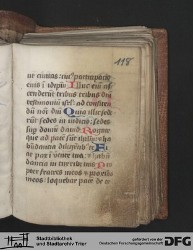 118
ut ciuitas: cuius participatio
eius in idipsum Illuc enim as
cenderunt tribus tribus dni
testimoniu isrl: ad confiten
dum noi dni Quia illic sede
runt sedes in iudicio: sedes
sup domu dauid Rogate
que ad pacē sūt
habundancia diligentib te Fi
at pax i virtute tua: et habū
dancia in turribus tuis Pro
pter fratres meos et proximos
meos: loquebar pacē de te
Stadtbibliothek
und Stadtarchiv Trier
gefördert von der
Deutschen Forschungsgemeinschaft
DFG